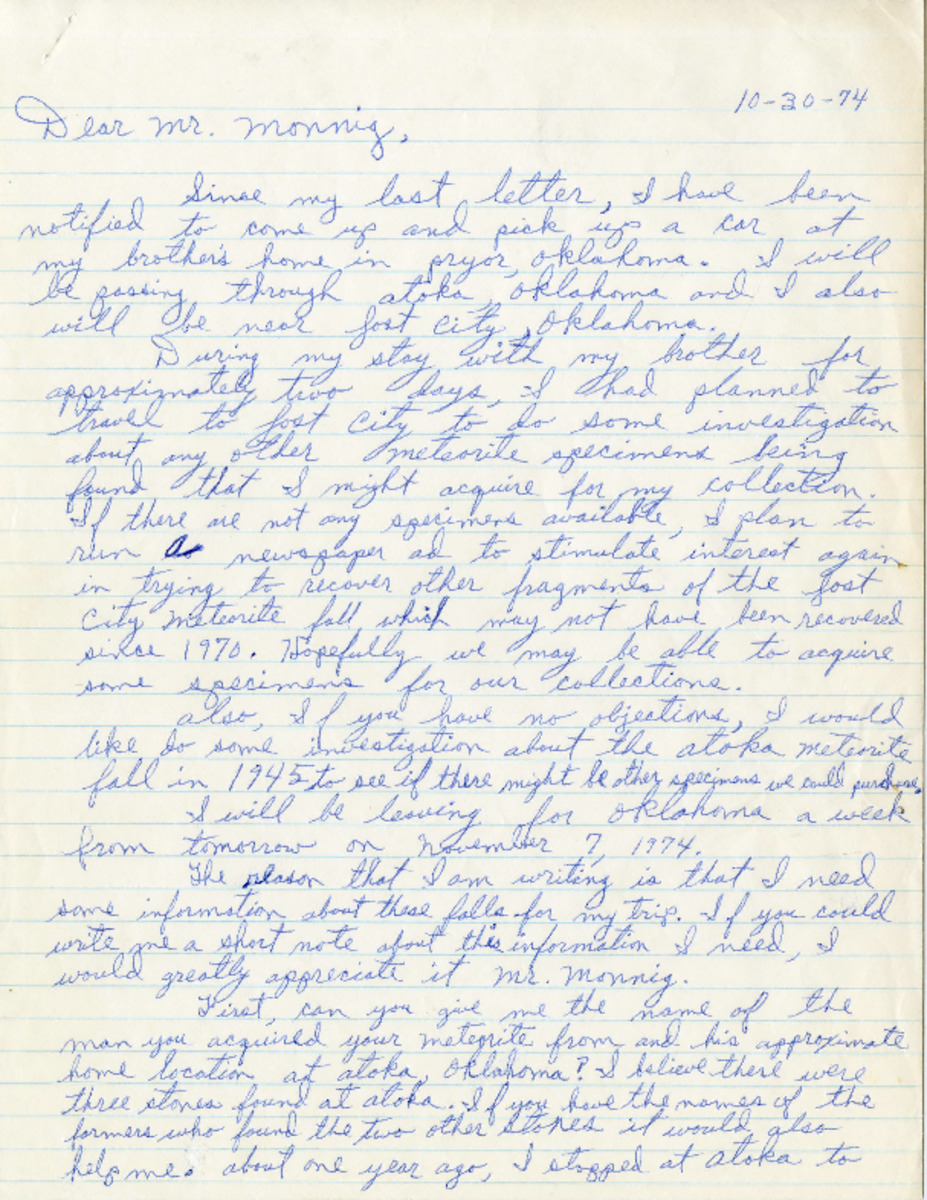 10-30-74
Dear Mr. Monnig,
Since my last letter, I have been
notified to come up and pick up a car at
my brother's home in pryor, Oklahoma. I will
be passing through atoka, Oklahoma and I also
will be near Lost City, Oklahoma.
During my stay with my brother for
approximately two days, I had planned to
travel to Lost City to do some investigation
about any other meteorite specimens being
found that I might acquire for my collection.
If there are not any specimens available, I plan to
run a newspaper ad to stimulate interest again
in trying to recover other fragments of the Lost
City meteorite fall which may not have been recovered
since 1970. Hopefully we may be able to acquire
some specimens for our collections.
also, If you have no objections, I would
like do some investigation about the atoka meteorite
fall in 1945 to see if there might be other specimens we could purchase.
I will be leaving for Oklahoma a week
from tomorrow on November 7, 1974.
The reason that I am writing is that I need
some information about these falls for my trip. If you could
write me a short note about this information I need, I
would greatly appreciate it Mr. Monnig.
First, can you give me the name of the
man you acquired your meteorite from and his approximate
home location at atoka, Oklahoma? I believe there were
three stones found at atoka. If you have the names of the
farmers who found the two other stones it would also
help me. about one year ago, I stopped at atoka to